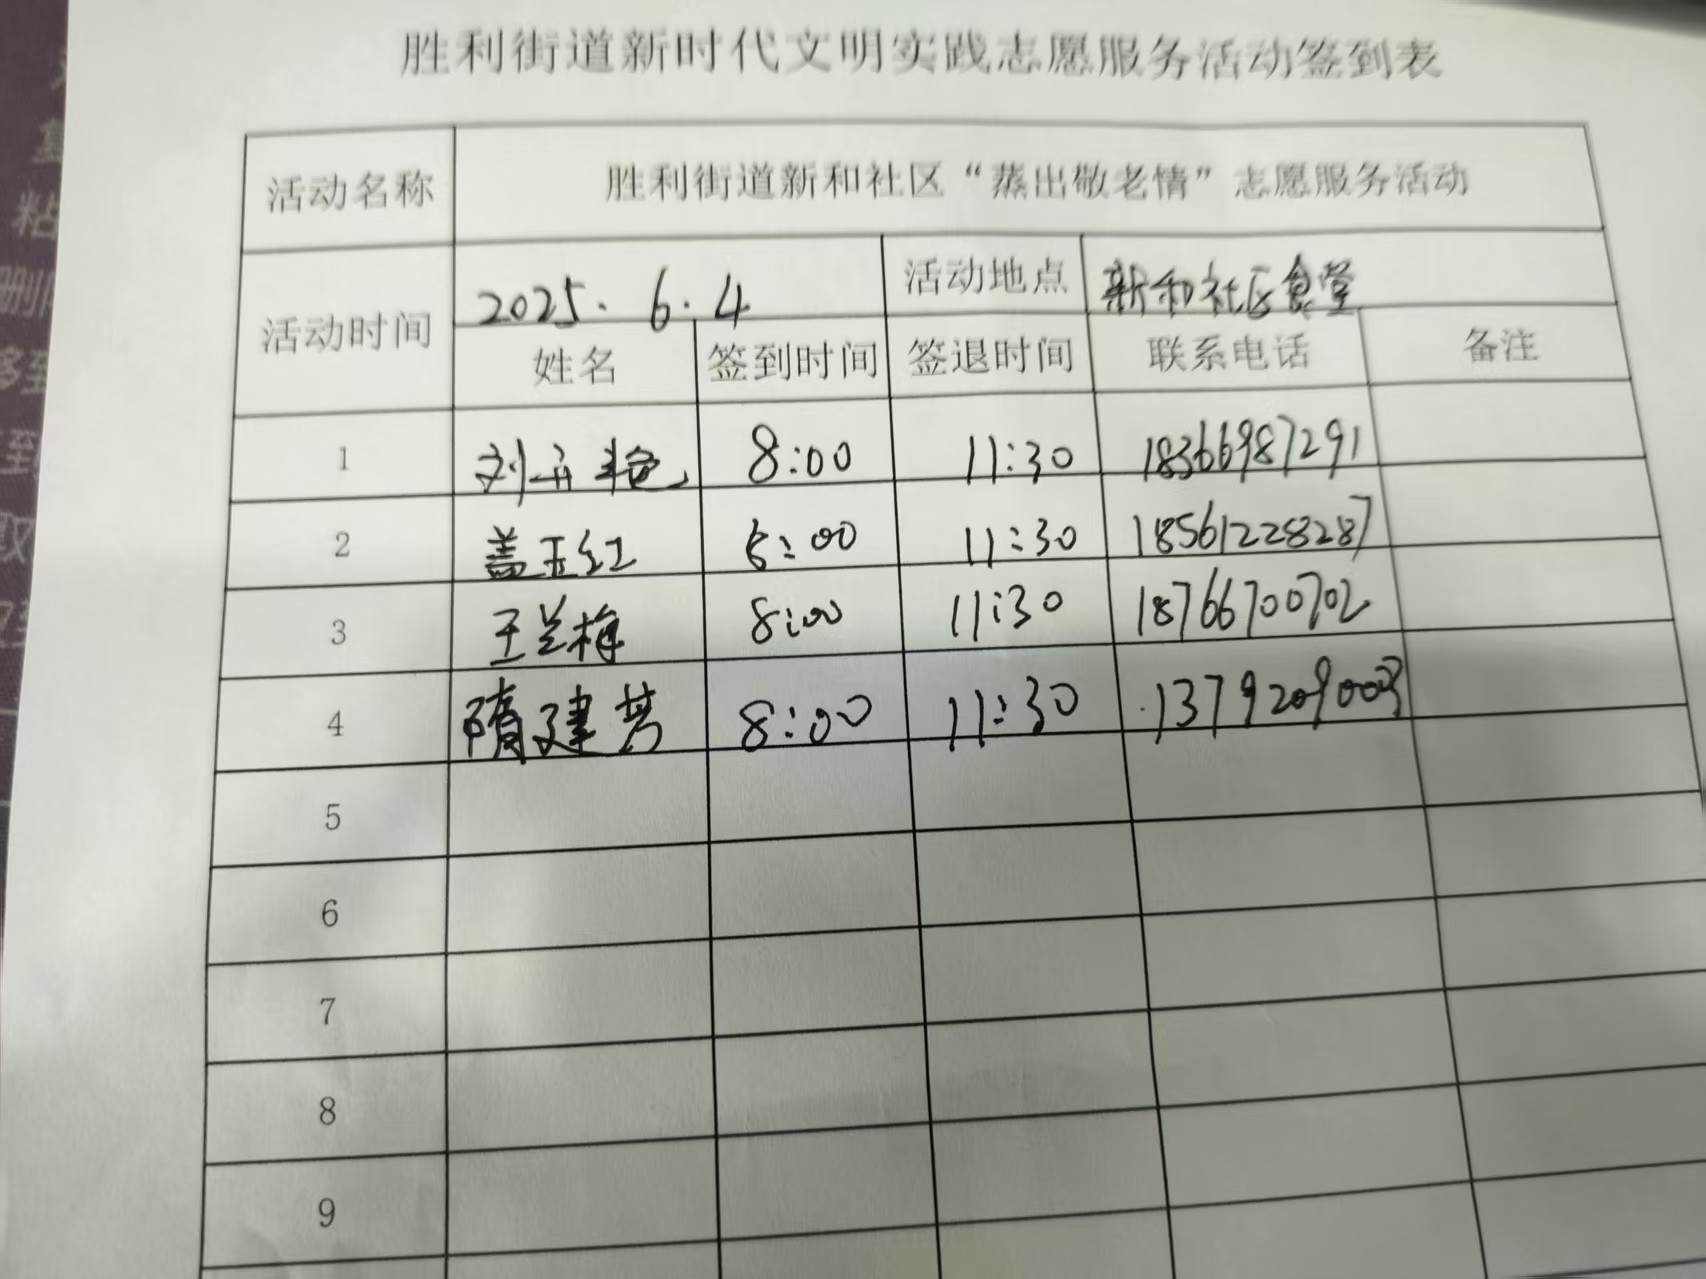 胜利街道新时代文明实践志愿服务活动签到表
活动名称 胜利街道新和社区“蒸出敬老情”志愿服务活动
活动时间 2025.6.4 活动地点 新和社区食堂
姓名 签到时间 签退时间 联系电话 备注
1 刘 艳 8:00 11:30 18366987291
2 盖玉红 8:00 11:30 18561228287
3 王兰梅 8:00 11:30 18766700702
4 隋建 8:00 11:30
5
6
7
8
9
粘
删
移至
至
取